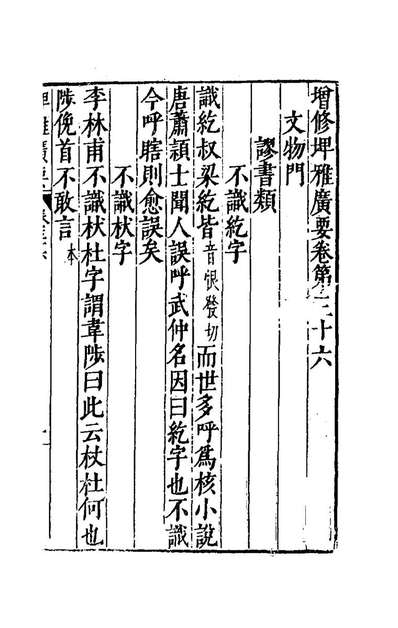 增修埤雅廣要卷第三十六
文物門
謬書類
不識紇字
識紇叔梁紇皆音恨發切而世多呼爲核小說
唐蕭潁士聞人誤呼武仲名因曰紇字也不識
今呼瞎則愈誤矣
不識杕字
李林甫不識杕杜字謂韋陟曰此云杖杜何也
陟俛首不敢言本